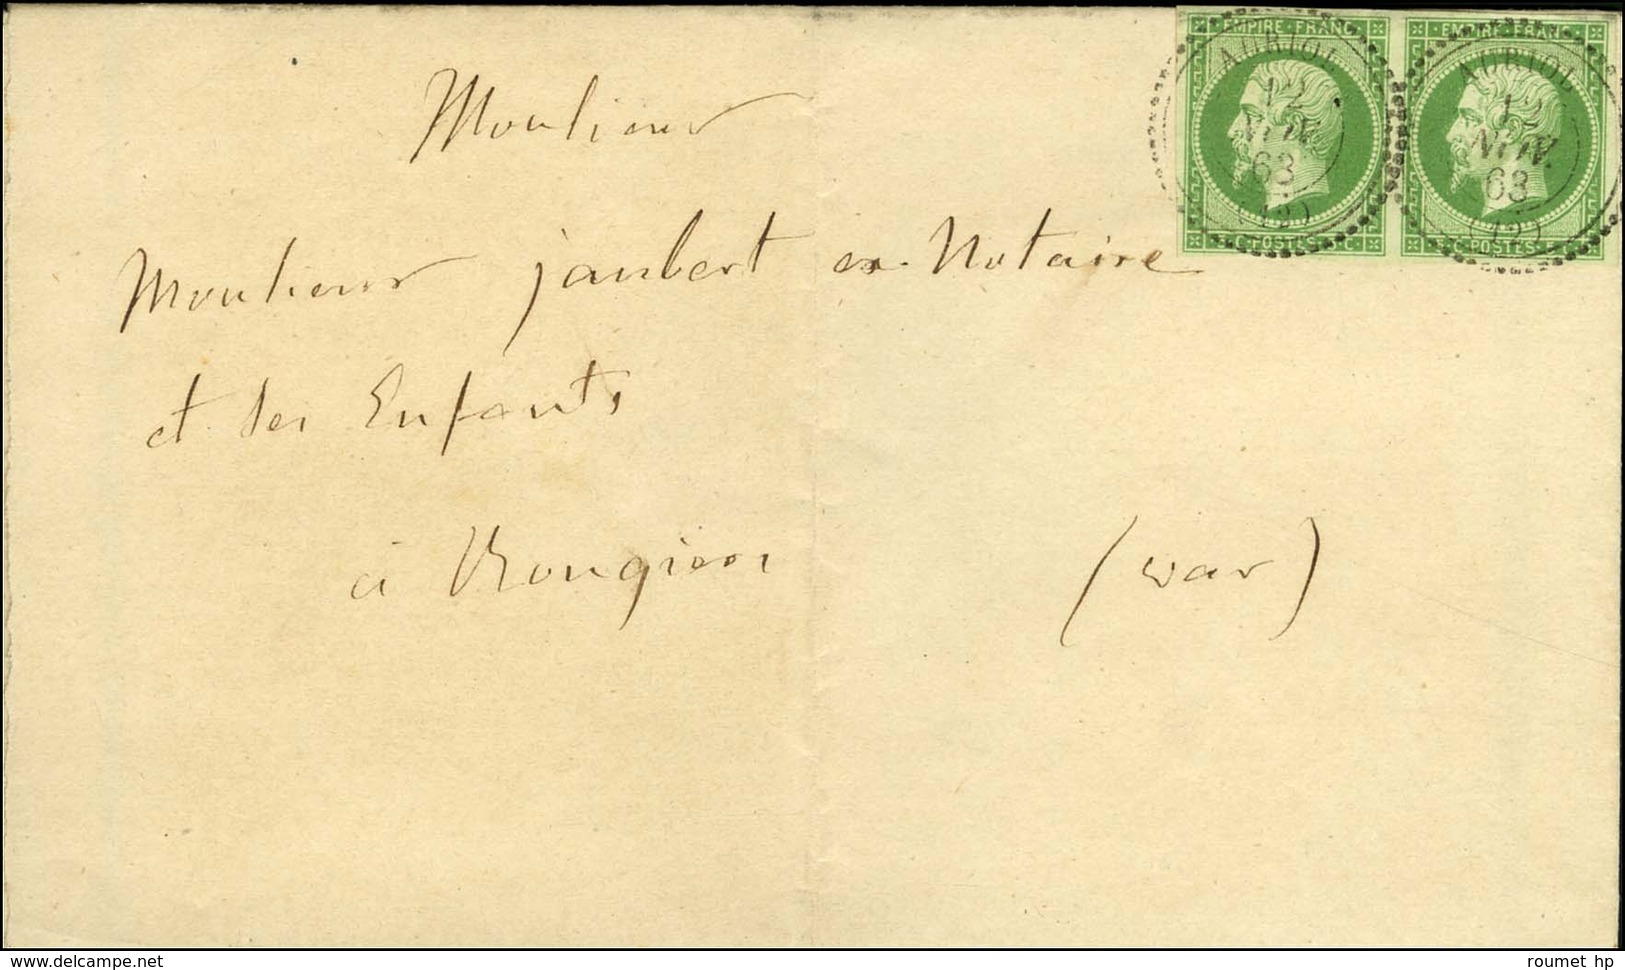 EMPIRE FRANC EMPIRE FRANC
AURIOL AURIOL
12 12
NOV. NOV.
63 63
(12) (12)
C. POSTES 5 C. C. POSTES 5 C.
Monsieur
Monsieur jaubert ex Notaire
et ses Enfants
à Rougiers (var)
delcampe.net
roumet hp